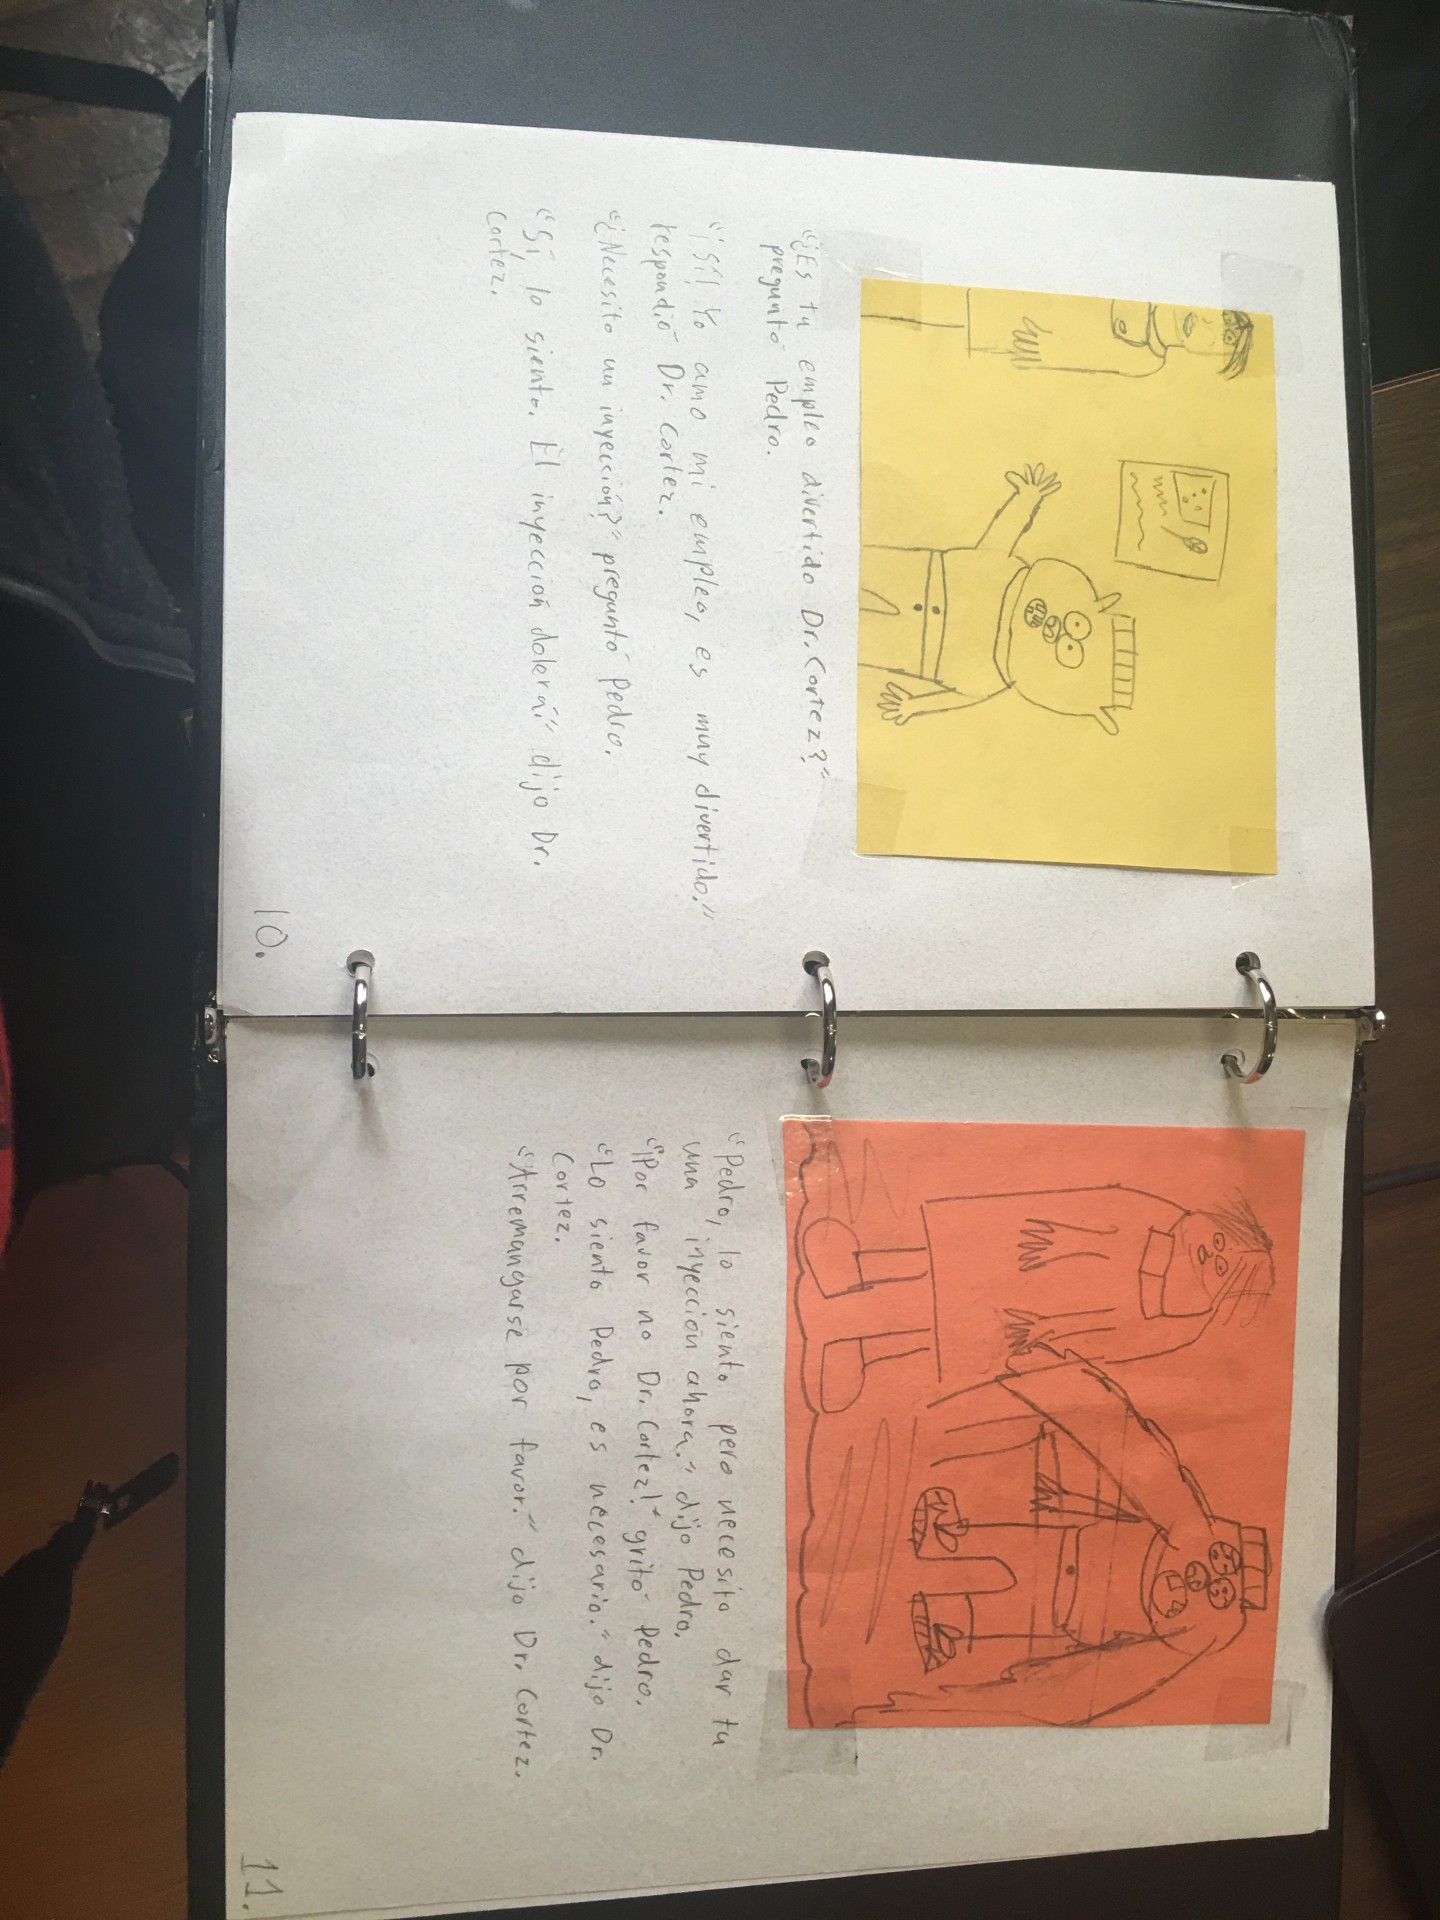 "¿Es tu empleo divertido Dr. Cortez?"
preguntó Pedro.
"¡Sí! Yo amo mi empleo, es muy divertido."
respondió Dr. Cortez.
"¿Necesito un inyección?" preguntó Pedro.
"Sí, lo siento. Él inyección dolerá." dijo Dr.
Cortez.
10.
"Pedro, lo siento pero necesito dar tu
una inyección ahora." dijo Pedro.
"¡Por favor no Dr. Cortez!" gritó Pedro.
"Lo siento Pedro, es necesario." dijo Dr.
Cortez.
"Arremangarse por favor." dijo Dr. Cortez.
11.